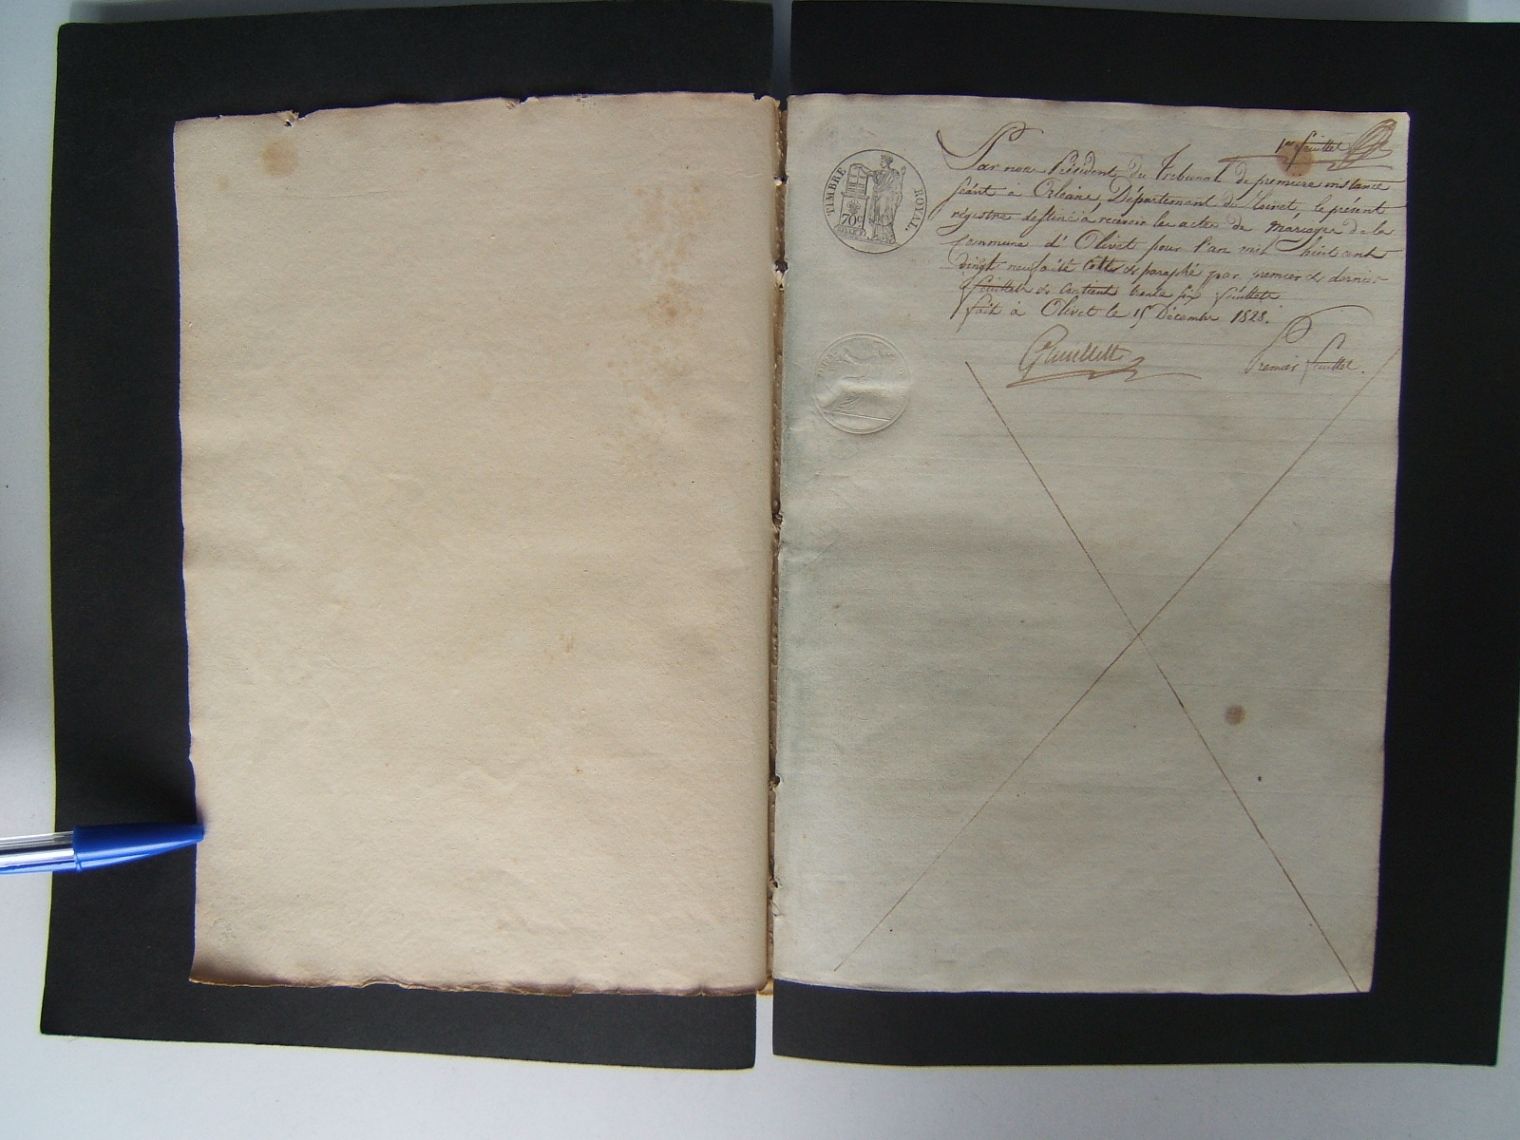 1er feuillet
TIMBRE ROYAL.
70c
Par nous Président du Tribunal de première instance
séant à Orléans, Département du Loiret, le présent
régistre destiné à recevoir les actes de mariages de la
Commune d'Olivet pour l'an mil huit cent
vingt neuf a été cotté et paraphé par premier et dernier
feuillets et contient trente six feuillets
fait à Olivet le 15 Décembre 1828.
Premier feuillet.